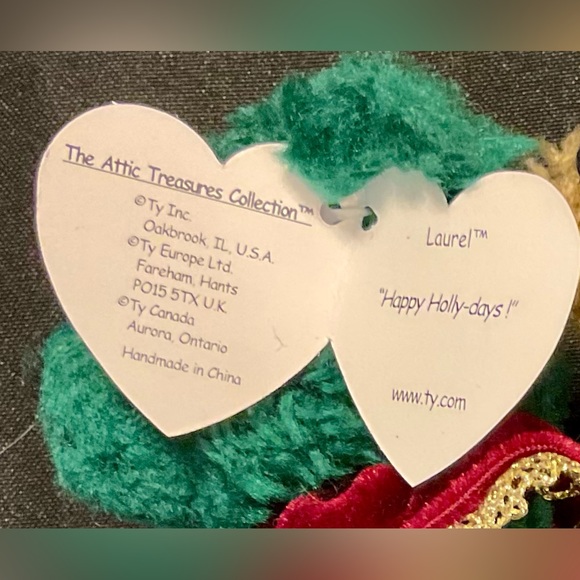 The Attic Treasures Collection™
©Ty Inc.
Oakbrook, IL, U.S.A.
©Ty Europe Ltd.
Fareham, Hants
PO15 5TX U.K.
©Ty Canada
Aurora, Ontario
Handmade in China
Laurel™
"Happy Holly-days !"
www.ty.com